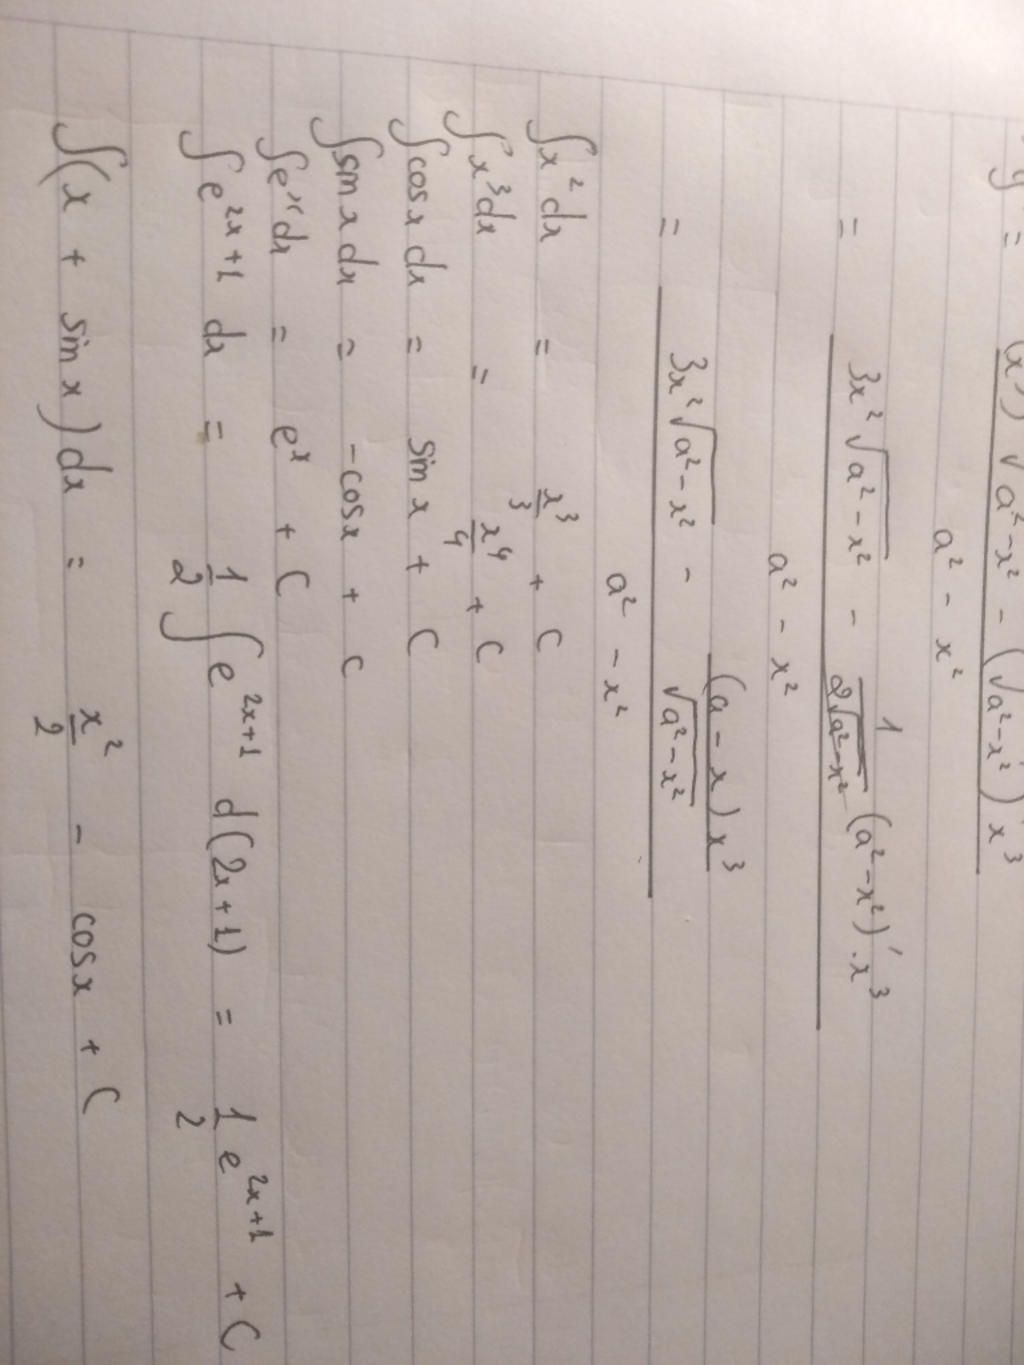 y' = \frac{(x^3)' \sqrt{a^2-x^2} - (\sqrt{a^2-x^2})' x^3}{a^2 - x^2}
= \frac{3x^2 \sqrt{a^2-x^2} - \frac{1}{2\sqrt{a^2-x^2}} (a^2-x^2)' \cdot x^3}{a^2 - x^2}
= \frac{3x^2 \sqrt{a^2-x^2} - \frac{(a-x) x^3}{\sqrt{a^2-x^2}}}{a^2 - x^2}
∫ x^2 dx = \frac{x^3}{3} + C
∫ x^3 dx = \frac{x^4}{4} + C
∫ cos x dx = sin x + C
∫ sin x dx = -cos x + C
∫ e^x dx = e^x + C
∫ e^{2x+1} dx = \frac{1}{2} ∫ e^{2x+1} d(2x+1) = \frac{1}{2} e^{2x+1} + C
∫ (x + sin x) dx = \frac{x^2}{2} - cos x + C